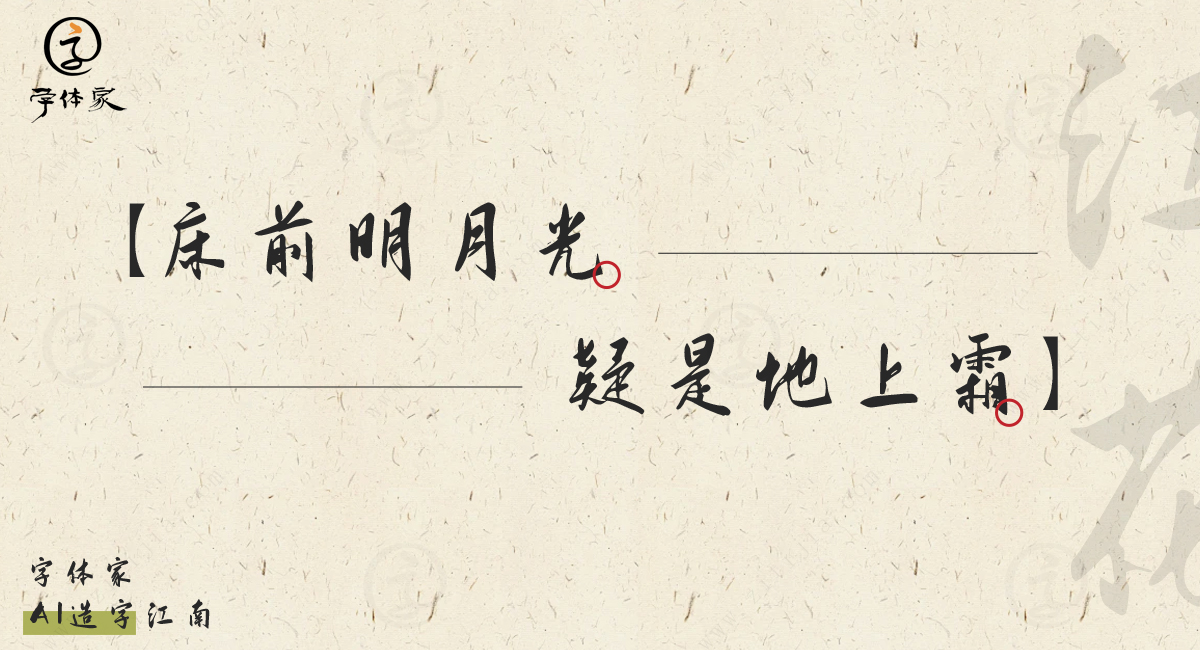 字
字体家
【床前明月光。
疑是地上霜。】
江花
字体家
AI造字江南